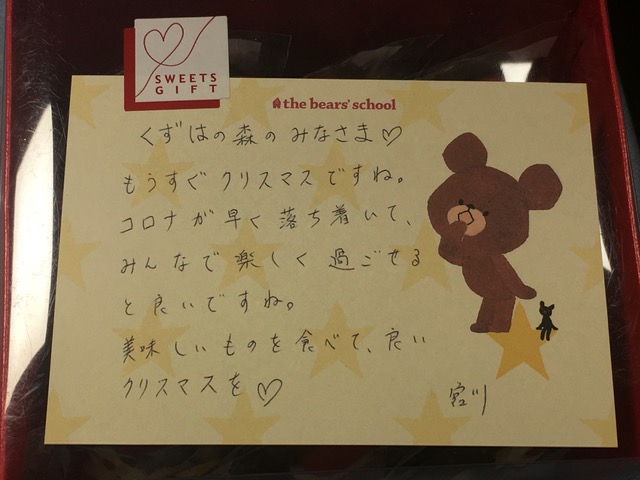 SWEETS
GIFT
the bears' school
くずはの森のみなさま♡
もうすぐクリスマスですね。
コロナが早く落ち着いて、
みんなで楽しく過ごせる
と良いですね。
美味しいものを食べて、良い
クリスマスを♡
宮川